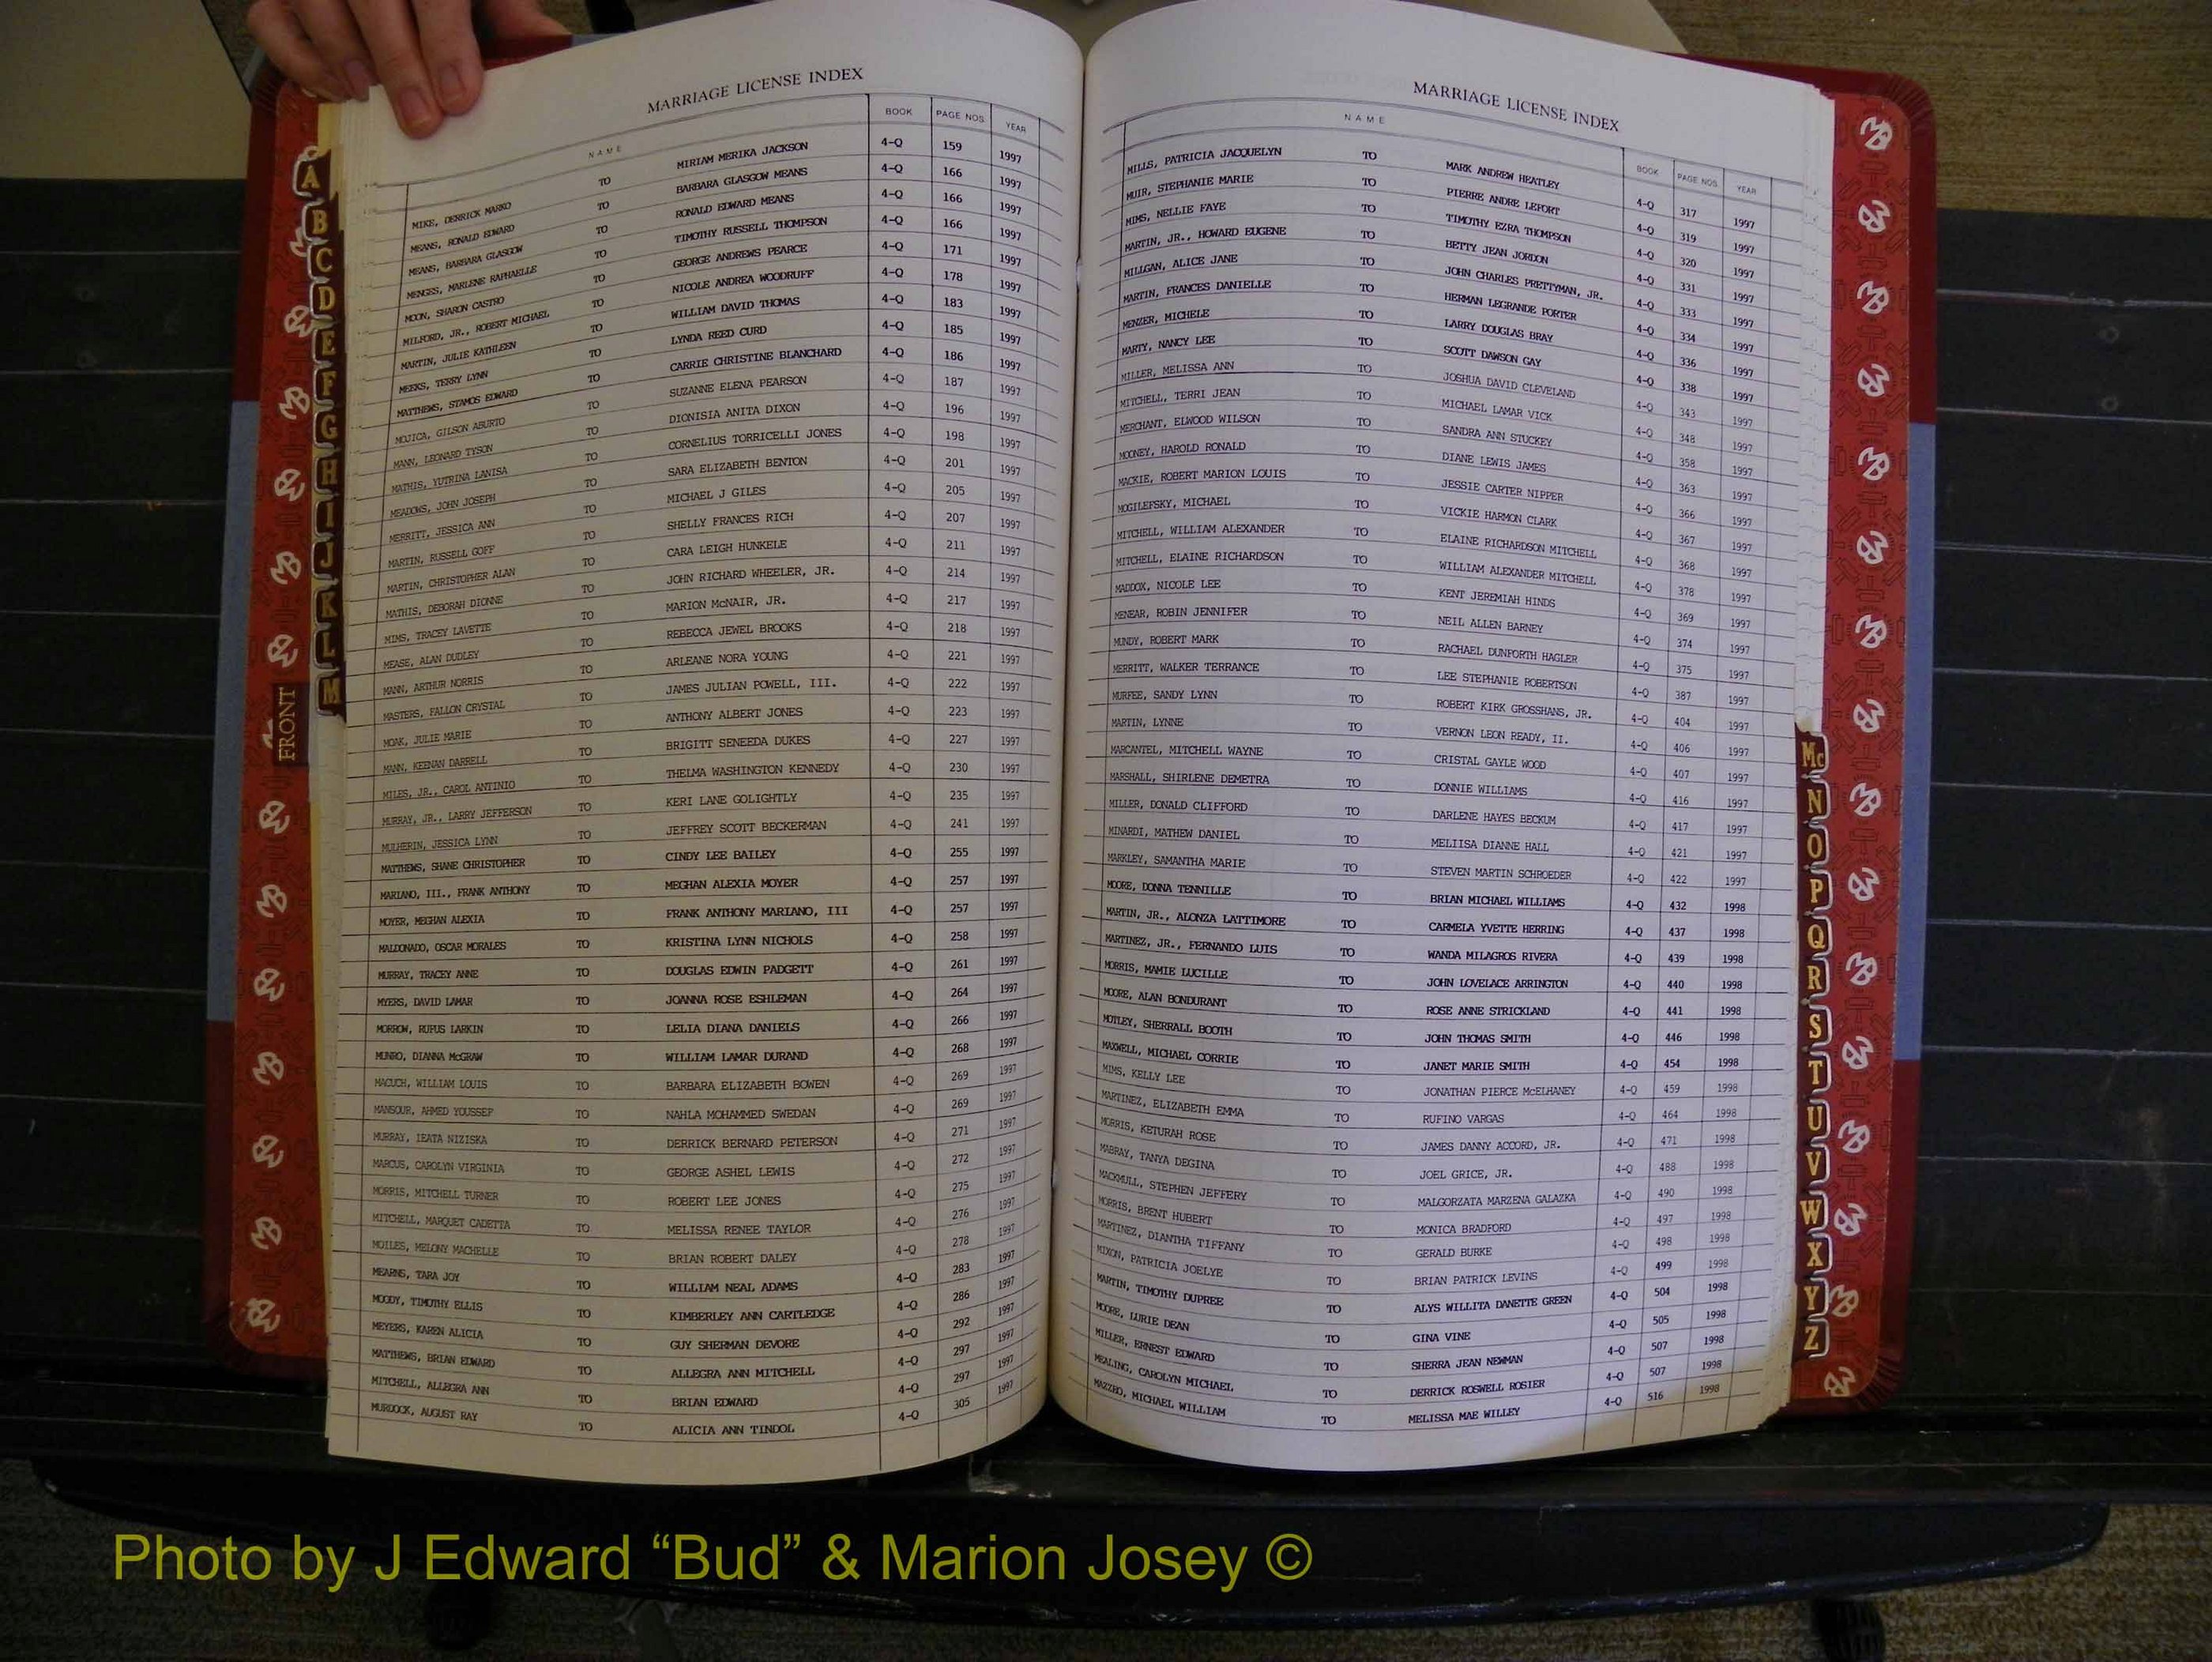 MARRIAGE LICENSE INDEX
NAME BOOK PAGE NOS. YEAR
MIKE, DERRICK MARKO TO MIRIAM MERIKA JACKSON 4-Q 159 1997
MEANS, RONALD EDWARD TO BARBARA GLASGOW MEANS 4-Q 166 1997
MEANS, BARBARA GLASGOW TO RONALD EDWARD MEANS 4-Q 166 1997
MENGES, MARLENE RAPHAELLE TO TIMOTHY RUSSELL THOMPSON 4-Q 166 1997
MOON, SHARON CASTRO TO GEORGE ANDREWS PEARCE 4-Q 171 1997
MILFORD, JR., ROBERT MICHAEL TO NICOLE ANDREA WOODRUFF 4-Q 178 1997
MARTIN, JULIE KATHLEEN TO WILLIAM DAVID THOMAS 4-Q 183 1997
MEEKS, TERRY LYNN TO LYNDA REED CURD 4-Q 185 1997
MATTHEWS, STAMOS EDWARD TO CARRIE CHRISTINE BLANCHARD 4-Q 186 1997
MOJICA, GILSON ABURTO TO SUZANNE ELENA PEARSON 4-Q 187 1997
MANN, LEONARD TYSON TO DIONISIA ANITA DIXON 4-Q 196 1997
MATHIS, YUTRINA LANISA TO CORNELIUS TORRICELLI JONES 4-Q 198 1997
MEADOWS, JOHN JOSEPH TO SARA ELIZABETH BENTON 4-Q 201 1997
MERRITT, JESSICA ANN TO MICHAEL J GILES 4-Q 205 1997
MARTIN, RUSSELL GOFF TO SHELLY FRANCES RICH 4-Q 207 1997
MARTIN, CHRISTOPHER ALAN TO CARA LEIGH HUNKELE 4-Q 211 1997
MATHIS, DEBORAH DIONNE TO JOHN RICHARD WHEELER, JR. 4-Q 214 1997
MIMS, TRACEY LAVETTE TO MARION McNAIR, JR. 4-Q 217 1997
MEASE, ALAN DUDLEY TO REBECCA JEWEL BROOKS 4-Q 218 1997
MANN, ARTHUR NORRIS TO ARLEANE NORA YOUNG 4-Q 221 1997
MASTERS, FALLON CRYSTAL TO JAMES JULIAN POWELL, III. 4-Q 222 1997
MOAK, JULIE MARIE TO ANTHONY ALBERT JONES 4-Q 223 1997
MANN, KEENAN DARRELL TO BRIGITT SENEEDA DUKES 4-Q 227 1997
MILES, JR., CAROL ANTINIO TO THELMA WASHINGTON KENNEDY 4-Q 230 1997
MURRAY, JR., LARRY JEFFERSON TO KERI LANE GOLIGHTLY 4-Q 235 1997
MULHERIN, JESSICA LYNN TO JEFFREY SCOTT BECKERMAN 4-Q 241 1997
MATTHEWS, SHANE CHRISTOPHER TO CINDY LEE BAILEY 4-Q 255 1997
MARIANO, III., FRANK ANTHONY TO MEGHAN ALEXIA MOYER 4-Q 257 1997
MOYER, MEGHAN ALEXIA TO FRANK ANTHONY MARIANO, III 4-Q 257 1997
MALDONADO, OSCAR MORALES TO KRISTINA LYNN NICHOLS 4-Q 258 1997
MURRAY, TRACEY ANNE TO DOUGLAS EDWIN PADGETT 4-Q 261 1997
MYERS, DAVID LAMAR TO JOANNA ROSE ESHLEMAN 4-Q 264 1997
MORROW, RUFUS LARKIN TO LELIA DIANA DANIELS 4-Q 266 1997
MUNRO, DIANNA McGRAW TO WILLIAM LAMAR DURAND 4-Q 268 1997
MACUCH, WILLIAM LOUIS TO BARBARA ELIZABETH BOWEN 4-Q 269 1997
MANSOUR, AHMED YOUSSEF TO NAHLA MOHAMMED SWEDAN 4-Q 269 1997
MURRAY, IEATA NIZISKA TO DERRICK BERNARD PETERSON 4-Q 271 1997
MARCUS, CAROLYN VIRGINIA TO GEORGE ASHEL LEWIS 4-Q 272 1997
MORRIS, MITCHELL TURNER TO ROBERT LEE JONES 4-Q 275 1997
MITCHELL, MARQUET CADETTA TO MELISSA RENEE TAYLOR 4-Q 276 1997
MOILES, MELONY MACHELLE TO BRIAN ROBERT DALEY 4-Q 278 1997
MEARNS, TARA JOY TO WILLIAM NEAL ADAMS 4-Q 283 1997
MOODY, TIMOTHY ELLIS TO KIMBERLEY ANN CARTLEDGE 4-Q 286 1997
MEYERS, KAREN ALICIA TO GUY SHERMAN DEVORE 4-Q 292 1997
MATTHEWS, BRIAN EDWARD TO ALLEGRA ANN MITCHELL 4-Q 297 1997
MITCHELL, ALLEGRA ANN TO BRIAN EDWARD 4-Q 297 1997
MURDOCK, AUGUST RAY TO ALICIA ANN TINDOL 4-Q 305 1997
MARRIAGE LICENSE INDEX
NAME BOOK PAGE NOS. YEAR
MILLS, PATRICIA JACQUELYN TO MARK ANDREW HEATLEY 4-Q 317 1997
MUIR, STEPHANIE MARIE TO PIERRE ANDRE LEFORT 4-Q 319 1997
MIMS, NELLIE FAYE TO TIMOTHY EZRA THOMPSON 4-Q 320 1997
MARTIN, JR., HOWARD EUGENE TO BETTY JEAN JORDON 4-Q 331 1997
MILLGAN, ALICE JANE TO JOHN CHARLES PRETTYMAN, JR. 4-Q 333 1997
MARTIN, FRANCES DANIELLE TO HERMAN LEGRANDE PORTER 4-Q 334 1997
MENZER, MICHELE TO LARRY DOUGLAS BRAY 4-Q 336 1997
MARTY, NANCY LEE TO SCOTT DAWSON GAY 4-Q 338 1997
MILLER, MELISSA ANN TO JOSHUA DAVID CLEVELAND 4-Q 343 1997
MITCHELL, TERRI JEAN TO MICHAEL LAMAR VICK 4-Q 348 1997
MERCHANT, ELWOOD WILSON TO SANDRA ANN STUCKEY 4-Q 358 1997
MOONEY, HAROLD RONALD TO DIANE LEWIS JAMES 4-Q 363 1997
MACKIE, ROBERT MARION LOUIS TO JESSIE CARTER NIPPER 4-Q 366 1997
MOGILEFSKY, MICHAEL TO VICKIE HARMON CLARK 4-Q 367 1997
MITCHELL, WILLIAM ALEXANDER TO ELAINE RICHARDSON MITCHELL 4-Q 368 1997
MITCHELL, ELAINE RICHARDSON TO WILLIAM ALEXANDER MITCHELL 4-Q 378 1997
MADDOX, NICOLE LEE TO KENT JEREMIAH HINDS 4-Q 369 1997
MENEAR, ROBIN JENNIFER TO NEIL ALLEN BARNEY 4-Q 374 1997
MUNDY, ROBERT MARK TO RACHAEL DUNFORTH HAGLER 4-Q 375 1997
MERRITT, WALKER TERRANCE TO LEE STEPHANIE ROBERTSON 4-Q 387 1997
MURFEE, SANDY LYNN TO ROBERT KIRK GROSSHANS, JR. 4-Q 404 1997
MARTIN, LYNNE TO VERNON LEON READY, II. 4-Q 406 1997
MARCANTEL, MITCHELL WAYNE TO CRISTAL GAYLE WOOD 4-Q 407 1997
MARSHALL, SHIRLENE DEMETRA TO DONNIE WILLIAMS 4-Q 416 1997
MILLER, DONALD CLIFFORD TO DARLENE HAYES BECKUM 4-Q 417 1997
MINARDI, MATHEW DANIEL TO MELIISA DIANNE HALL 4-Q 421 1997
MARKLEY, SAMANTHA MARIE TO STEVEN MARTIN SCHROEDER 4-Q 422 1997
MOORE, DONNA TENNILLE TO BRIAN MICHAEL WILLIAMS 4-Q 432 1998
MARTIN, JR., ALONZA LATTIMORE TO CARMELA YVETTE HERRING 4-Q 437 1998
MARTINEZ, JR., FERNANDO LUIS TO WANDA MILAGROS RIVERA 4-Q 439 1998
MORRIS, MAMIE LUCILLE TO JOHN LOVELACE ARRINGTON 4-Q 440 1998
MOORE, ALAN BONDURANT TO ROSE ANNE STRICKLAND 4-Q 441 1998
MOTLEY, SHERRALL BOOTH TO JOHN THOMAS SMITH 4-Q 446 1998
MAXWELL, MICHAEL CORRIE TO JANET MARIE SMITH 4-Q 454 1998
MIMS, KELLY LEE TO JONATHAN PIERCE McELHANEY 4-Q 459 1998
MARTINEZ, ELIZABETH EMMA TO RUFINO VARGAS 4-Q 464 1998
MORRIS, KETURAH ROSE TO JAMES DANNY ACCORD, JR. 4-Q 471 1998
MABRAY, TANYA DEGINA TO JOEL GRICE, JR. 4-Q 488 1998
MACKMULL, STEPHEN JEFFERY TO MALGORZATA MARZENA GALAZKA 4-Q 490 1998
MORRIS, BRENT HUBERT TO MONICA BRADFORD 4-Q 497 1998
MARTINEZ, DIANTHA TIFFANY TO GERALD BURKE 4-Q 498 1998
MIXON, PATRICIA JOELYE TO BRIAN PATRICK LEVINS 4-Q 499 1998
MARTIN, TIMOTHY DUPREE TO ALYS WILLITA DANETTE GREEN 4-Q 504 1998
MOORE, LURIE DEAN TO GINA VINE 4-Q 505 1998
MILLER, ERNEST EDWARD TO SHERRA JEAN NEWMAN 4-Q 507 1998
MEALING, CAROLYN MICHAEL TO DERRICK ROSWELL ROSIER 4-Q 507 1998
MAZZEO, MICHAEL WILLIAM TO MELISSA MAE WILLEY 4-Q 516 1998
A
B
C
D
E
F
G
H
I
J
K
L
M
FRONT
Mc
N
O
P
Q
R
S
T
U
V
W
X
Y
Z
Photo by J Edward “Bud” & Marion Josey ©